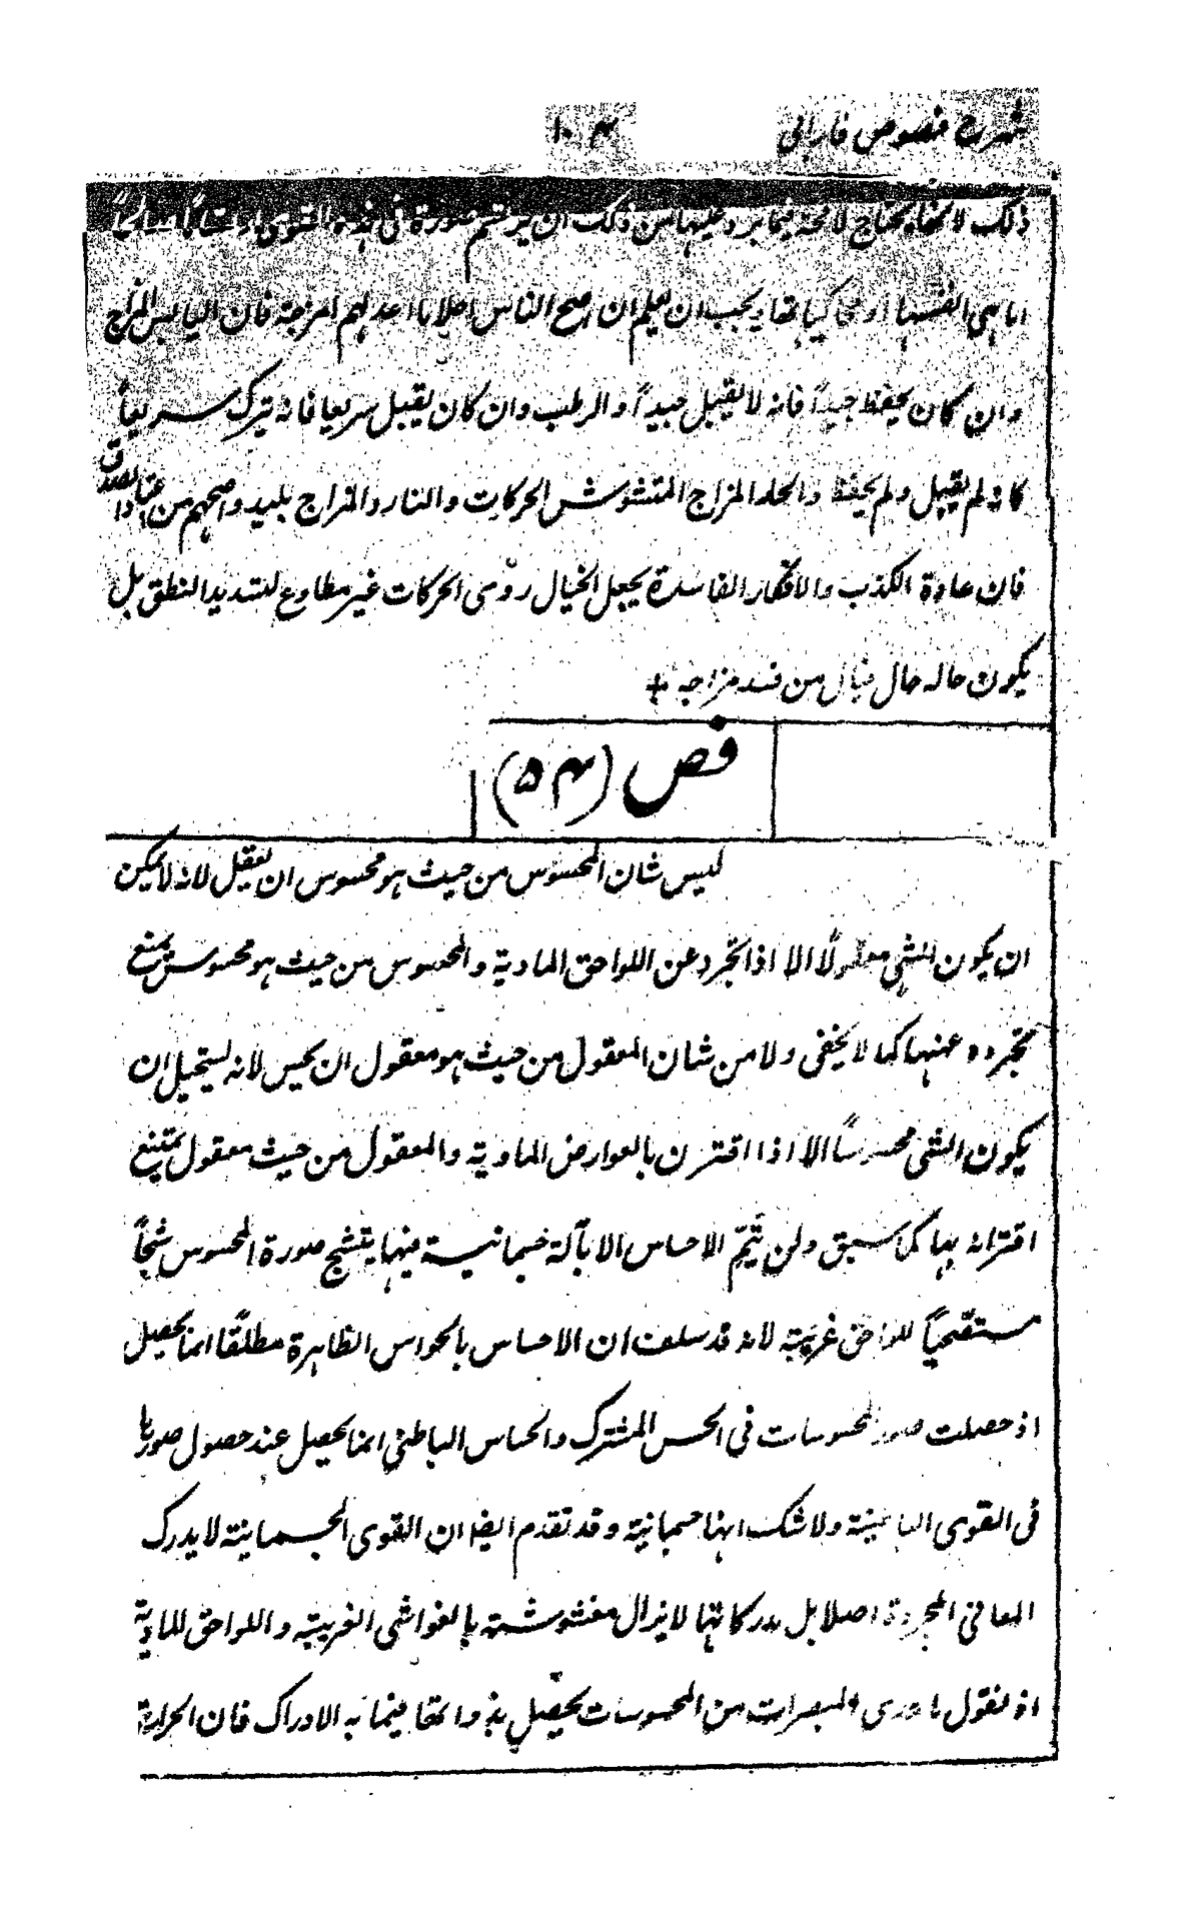 شرح فصوص فارابی ۱۰۴
ذلك لا يحتاج لامحة فيما يرد عليها من ذلك ان يرتسم صورة فى هذه القوى
اما هى انفسها او محاكياتها ويجب ان يعلم ان اصح الناس احلاما اعدلهم امزجة فان اليابس المزاج
وان كان يحفظ جيداً فانه لا يقبل جيداً والرطب وان كان يقبل سريعا فانه يترك سريعاً
كانه لم يقبل ولم يحفظ والحار المزاج المتشوش الحركات والبارد المزاج بليد واصحهم من اعتاد الصدق
فان عادة الكذب والافكار الفاسدة يجعل الخيال ردى الحركات غير مطاوع لتسديد النطق بل
يكون حاله حال خيال من فسد مزاجه +
فص (۵۴)
ليس شان المحسوس من حيث هو محسوس ان يعقل لانه لا يمكن
ان يكون الشئ معقولًا الا اذا تجرد عن اللواحق المادية والمحسوس من حيث هو محسوس يمتنع
تجرده عنها كما لا يخفى ولا من شان المعقول من حيث هو معقول ان يحس لانه يستحيل ان
يكون الشئ محسوسًا الا اذا اقترن بالعوارض المادية والمعقول من حيث معقول يمتنع
اقترانه بها كما سبق ولن يتمّ الاحساس الا بآلة جسمانية فيها يتشبح صورة المحسوس شبحاً
مستصحباً للواحق غريبة لانه قد سلف ان الاحساس بالحواس الظاهرة مطلقًا انما يحصل
اذ حصلت صور المحسوسات فى الحس المشترك والحساس الباطنى انما يحصل عند حصول صورها
فى القوى الباطنية ولا شك انها جسمانية وقد تقدم ايضا ان القوى الجسمانية لا يدرك
المعانى المجردة اصلا بل مدركاتها لا يزال مغشوشة بالغواشى الغريبة واللواحق المادية
اذ نقول ما درى المبصرات من المحسوسات يحصل بذواتها فيما به الادراك فان الحرارة